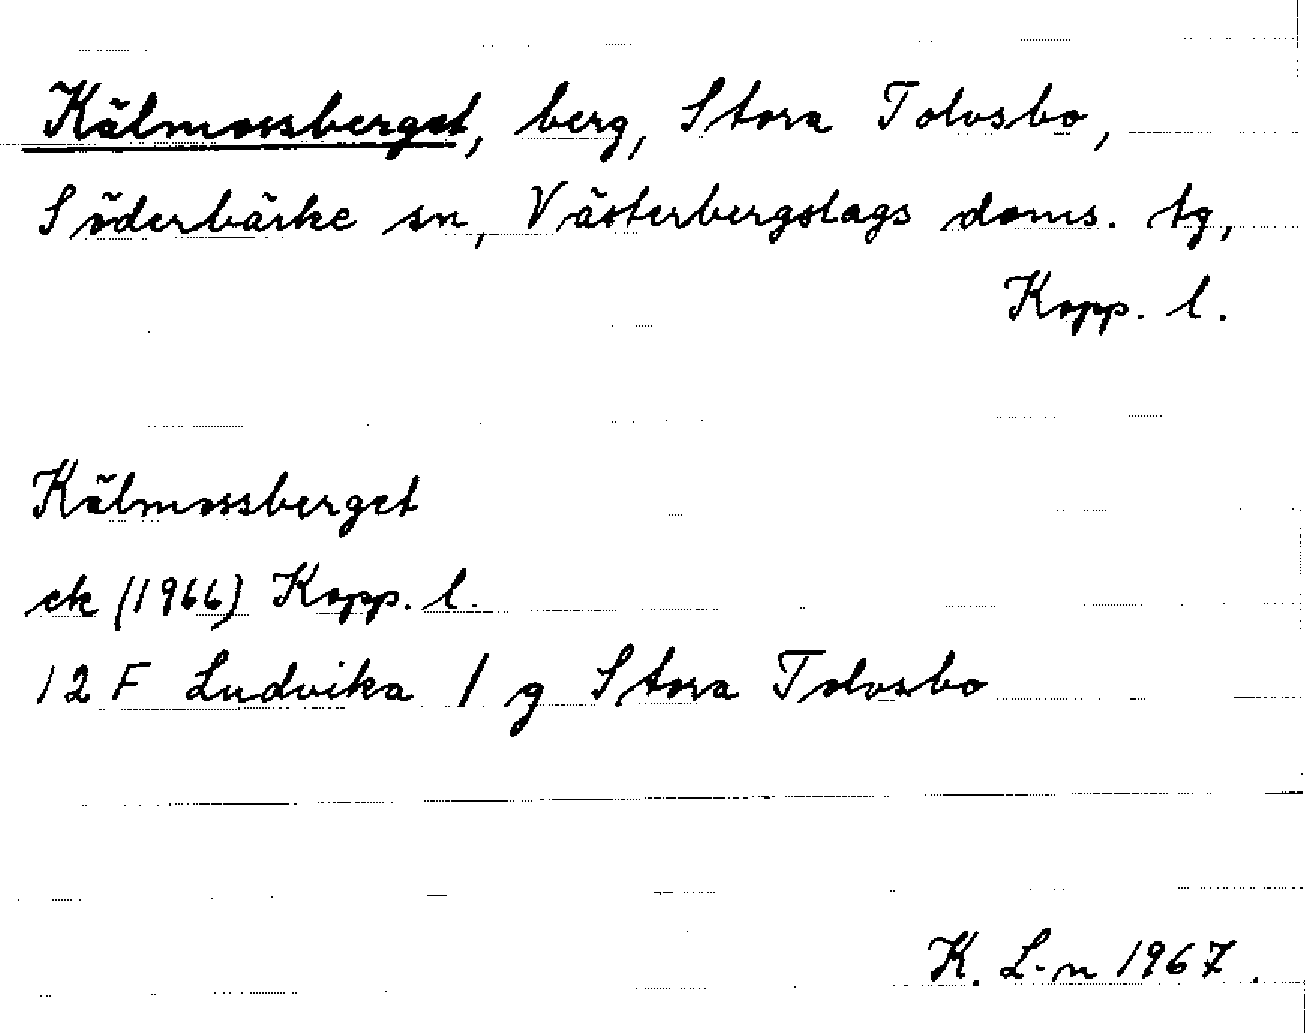 Kälmossberget, berg, Stora Tolvsbo,
Söderbärke sn, Västerbergslags doms. tg,
Kopp. l.
Kälmossberget
ek (1966) Kopp. l.
12 F Ludvika 1 g Stora Tolvsbo
K. L-n 1967.